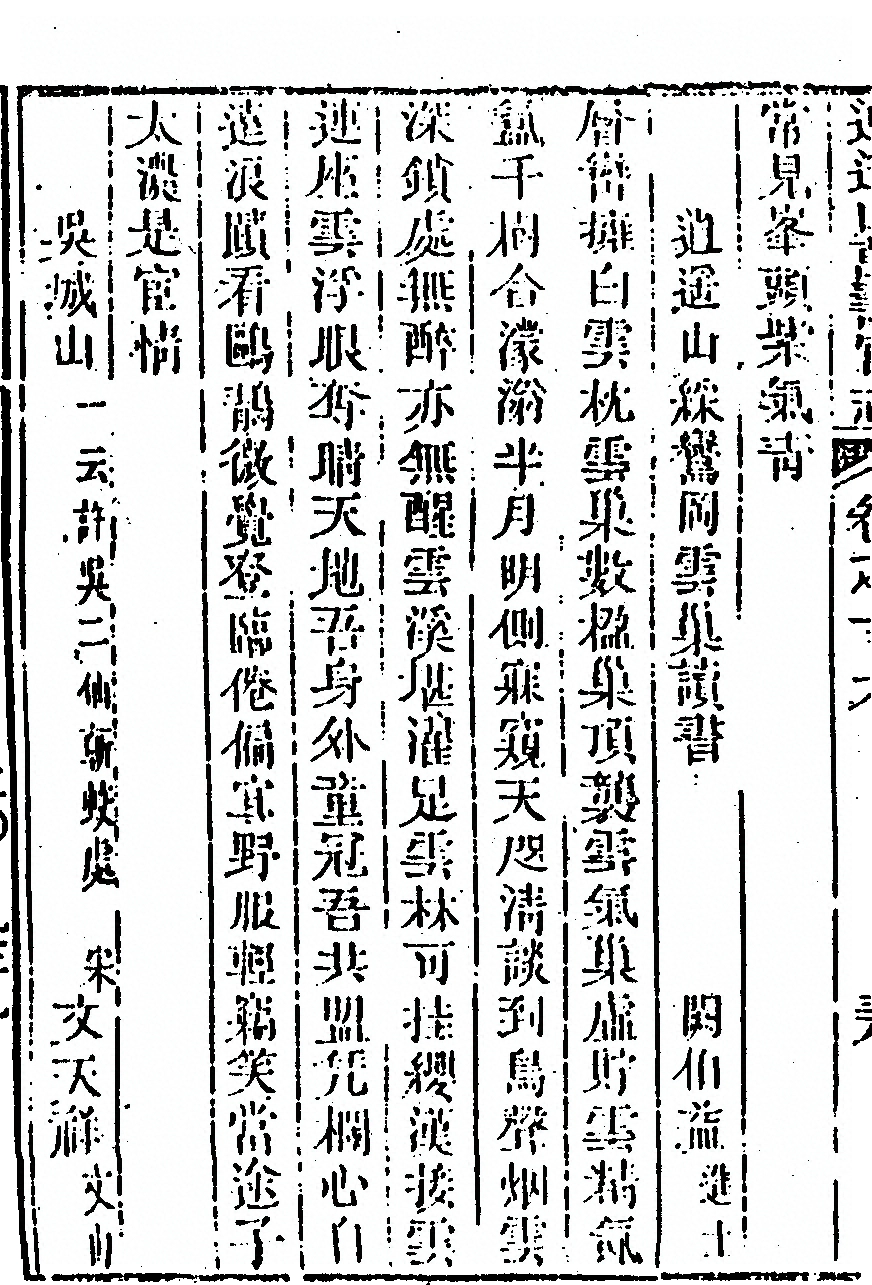 常見峯頭紫氣青
逍遥山綵鸞岡雲巢讀書 闕伯益進士
層巒擁白雲枕雲巢數楹巢頂襲雲氣巢虛貯雲精氤
氳千樹合濛滃半月明側寐窺天咫清談到鳥聲烟雲
深鎖處無醉亦無醒雲溪堪濯足雲林可挂纓漢接雲
連座雲浮眼奪晴天地吾身外童冠吾共盟凭欄心自
遠浪蹟看鷗鶄微覺登臨倦偏宜野服輕竊笑當途子
太濃是宦情
吳城山 一云許吳二仙斬蛟處 宋文天祥文山